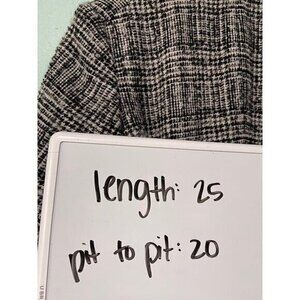 length: 25
pit to pit: 20